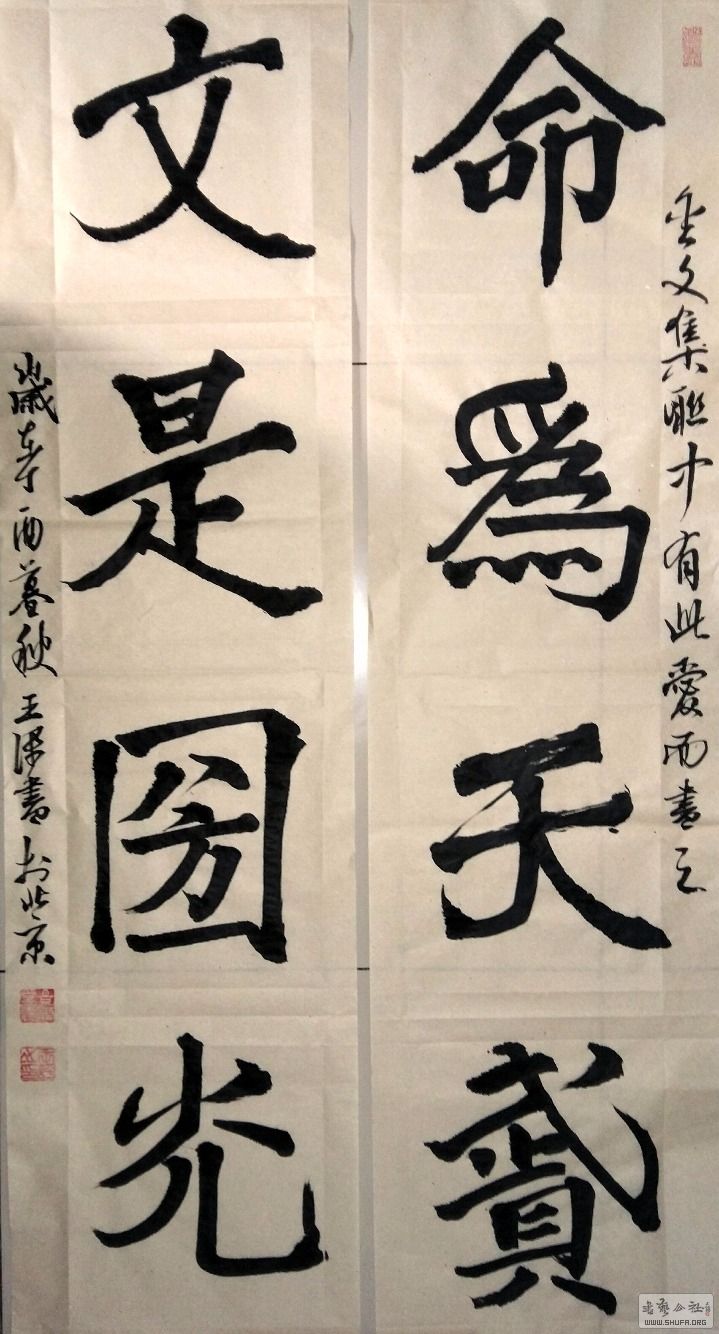 金文集聯中有此愛而書之
命爲天賦
文是圀光
歲在丁酉暮秋王書於北京
書藝公社
WWW.SHUFA.ORG